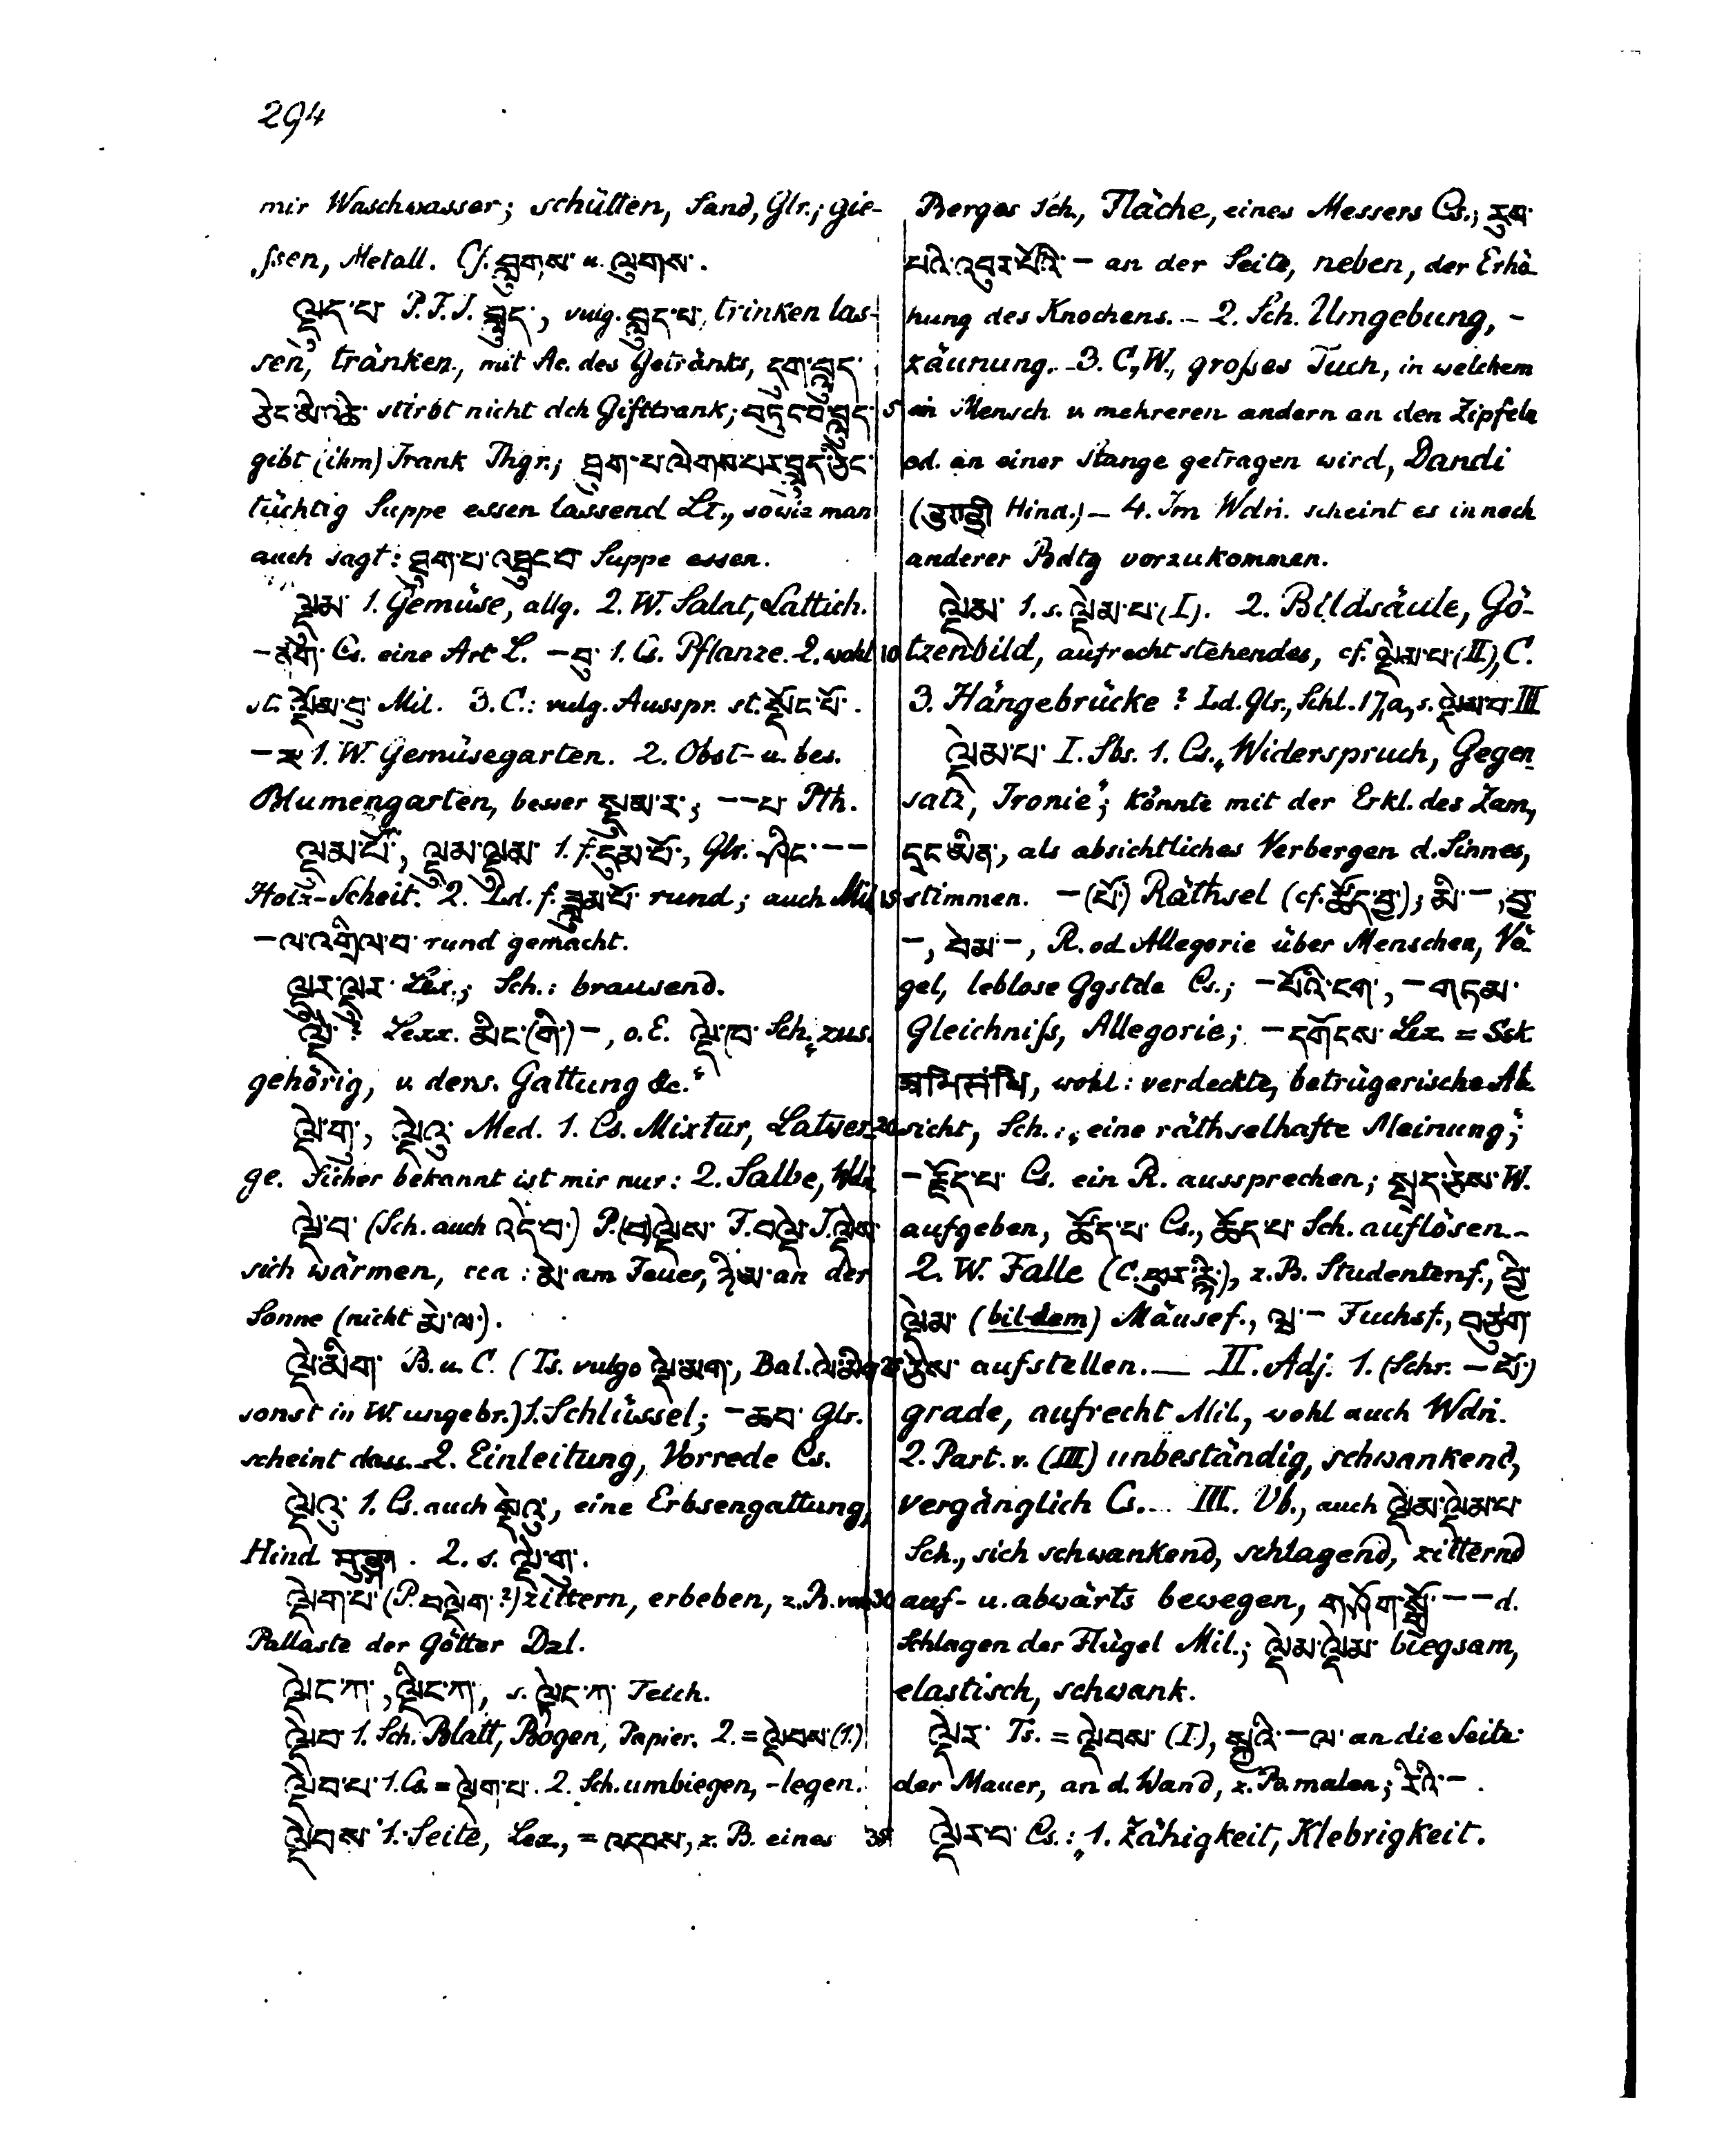 294
mir Waschwasser; schütten, Sand, Glr.; gie-
ssen, Metall. Cf. བླུགས་ u. ལུགས་.
ལྡུད་པ P.F.J. བླུད་, vulg. བླུད་པ, trinken las-
sen, tränken, mit Ac. des Getränks, དུག་བླུད་
stirbt nicht dch Gifttrank; བཏུང་བ་བླུད་
gibt (ihm) Trank Thgr.; ཐུག་པ་ལེགས་པར་བླུད་ཅིང་
tüchtig Suppe essen lassend Lt., sowie man
auch sagt: ཐུག་པ་འཐུང་བ Suppe essen.
ལྡུམ་ 1. Gemüse, allg. 2. W. Salat, Lattich.
Cs. eine Art L. –བུ་ 1. Cs. Pflanze. 2. wohl
st. སྡུམ་བུ་ Mil. 3. C.: vulg. Ausspr. st. སྡོང་པོ་.
–ར 1. W. Gemüsegarten. 2. Obst- u. bes.
Blumengarten, besser སྡུམ་ར་; ––པ Pth.
ལྡུམ་པོ་, ལྡུམ་ལྡུམ 1. f. དུམ་པོ་, Glr. ཤིང་––
Holz-Scheit. 2. Ld. f. ཟླུམ་པོ་ rund; auch Mil
–ལ་འགྲིལ་བ་ rund gemacht.
ལྡུར་ལྡུར་ Lex.; Sch.: brausend.
ལྡེ་? Lexx. མིང་(གི་)–, o.E. ལྡེ་ཁ་ Sch. „zus.
gehörig, u. ders. Gattung &c.“
ལྡེ་གུ་, ལྡེའུ་ Med. 1. Cs. Mixtur, Latwer-
ge. Sicher bekannt ist mir nur: 2. Salbe, Wdn
ལྡེ་བ་ (Sch. auch འདེ་བ་) P. (བ)ལྡེས་ F. བལྡེ་ J. ལྡེས་
sich wärmen, cca: མེ་ am Feuer, ཉི་མ་ an der
Sonne (nicht མེ་ལ་).
ལྡེ་མིག་ B. u. C. (Ts. vulgo ལྡེ་མག, Bal. ལེ་མིག
sonst in W. ungebr.) 1. Schlüssel; –ཆབ་ Glr.
scheint dass. – 2. Einleitung, Vorrede Cs.
ལྡེའུ་ 1. Cs. auch སྡེའུ་, eine Erbsengattung,
Hind. 2. s. ལྡེ་གུ་.
ལྡེག་པ་ (P. བལྡེག་?) zittern, erbeben, z.B. von
Pallaste der Götter Dzl.
ལྡེང་ཀ་, ལྡིང་ཀ་, s. ལྡིང་ཀ་ Teich.
ལྡེབ་ 1. Sch. Blatt, Bogen, Papier. 2. = ལྡེབས་ (1.)
ལྡེབ་པ་ 1. Cs. = ལྡེག་པ་. 2. Sch. umbiegen, -legen.
ལྡེབས་ 1. Seite, Lex., = འདབས་, z. B. eines
Berges Sch., Fläche, eines Messers Cs.; རུས་
པའི་འབུར་པོའི་ – an der Seite, neben, der Erhö-
hung des Knochens. – 2. Sch. Umgebung, –
zäunung. – 3. C., W., grosses Tuch, in welchem
5 ein Mensch v. mehreren andern an den Zipfeln
od. an einer Stange getragen wird, Dandi
(Hind.) – 4. Im Wdn. scheint es in noch
anderer Bdtg vorzukommen.
ལྡེམ་ 1. s. ལྡེམ་པ་ (I). 2. Bildsäule, Gö-
10 tzenbild, aufrecht stehendes, cf. ལྡེམ་པ་ (II), C.
3. Hängebrücke? Ld. Glr., Schl. 17,a, s. ལྡེམ་པ་ III
ལྡེམ་པ་ I. Sbs. 1. Cs. „Widerspruch, Gegen-
satz, Ironie“; könnte mit der Erkl. des Zam,
དྲང་མིན་, als absichtliches Verbergen d. Sinnes,
15 stimmen. –(པོ་) Räthsel (cf. ཚོད་བྱ་); མི་–, བྱ་
–, བེམ་–, R. od. Allegorie über Menschen, Vö-
gel, leblose Ggstde Cs.; –པོའི་ངག་, –གཏམ་
Gleichniss, Allegorie; –དགོངས་ Lex. = Ssk
wohl: verdeckte, betrügerische Ab-
20 sicht, Sch.: „eine räthselhafte Meinung;“
Cs. ein R. aussprechen; W.
aufgeben, ཚོད་པ་ Cs., ཚོད་པ་ Sch. auflösen. –
2. W. Falle (C. ), z.B. Studentenf., བྱི་
ལྡེམ་ (bil-dem) Mäusef., ཝ་– Fuchsf., བཙུག
aufstellen. — II. Adj. 1. (Schr. –པོ་)
grade, aufrecht Mil., wohl auch Wdn.
2. Part. v. (III) unbeständig, schwankend,
vergänglich Cs. – III. Vb., auch ལྡེམ་ལྡེམ་པ་
Sch., sich schwankend, schlagend, zitternd
30 auf- u. abwärts bewegen, གཤོག་སྒྲོ་––d.
Schlagen der Flügel Mil.; ལྡེམ་ལྡེམ་ biegsam,
elastisch, schwank.
ལྡེར་ Ts. = ལྡེབས་ (I), –ལ་ an die Seite
der Mauer, an d. Wand, z.B. malen; རིའི་–.
35 ལྡེར་བ་ Cs.: „1. Zähigkeit, Klebrigkeit.